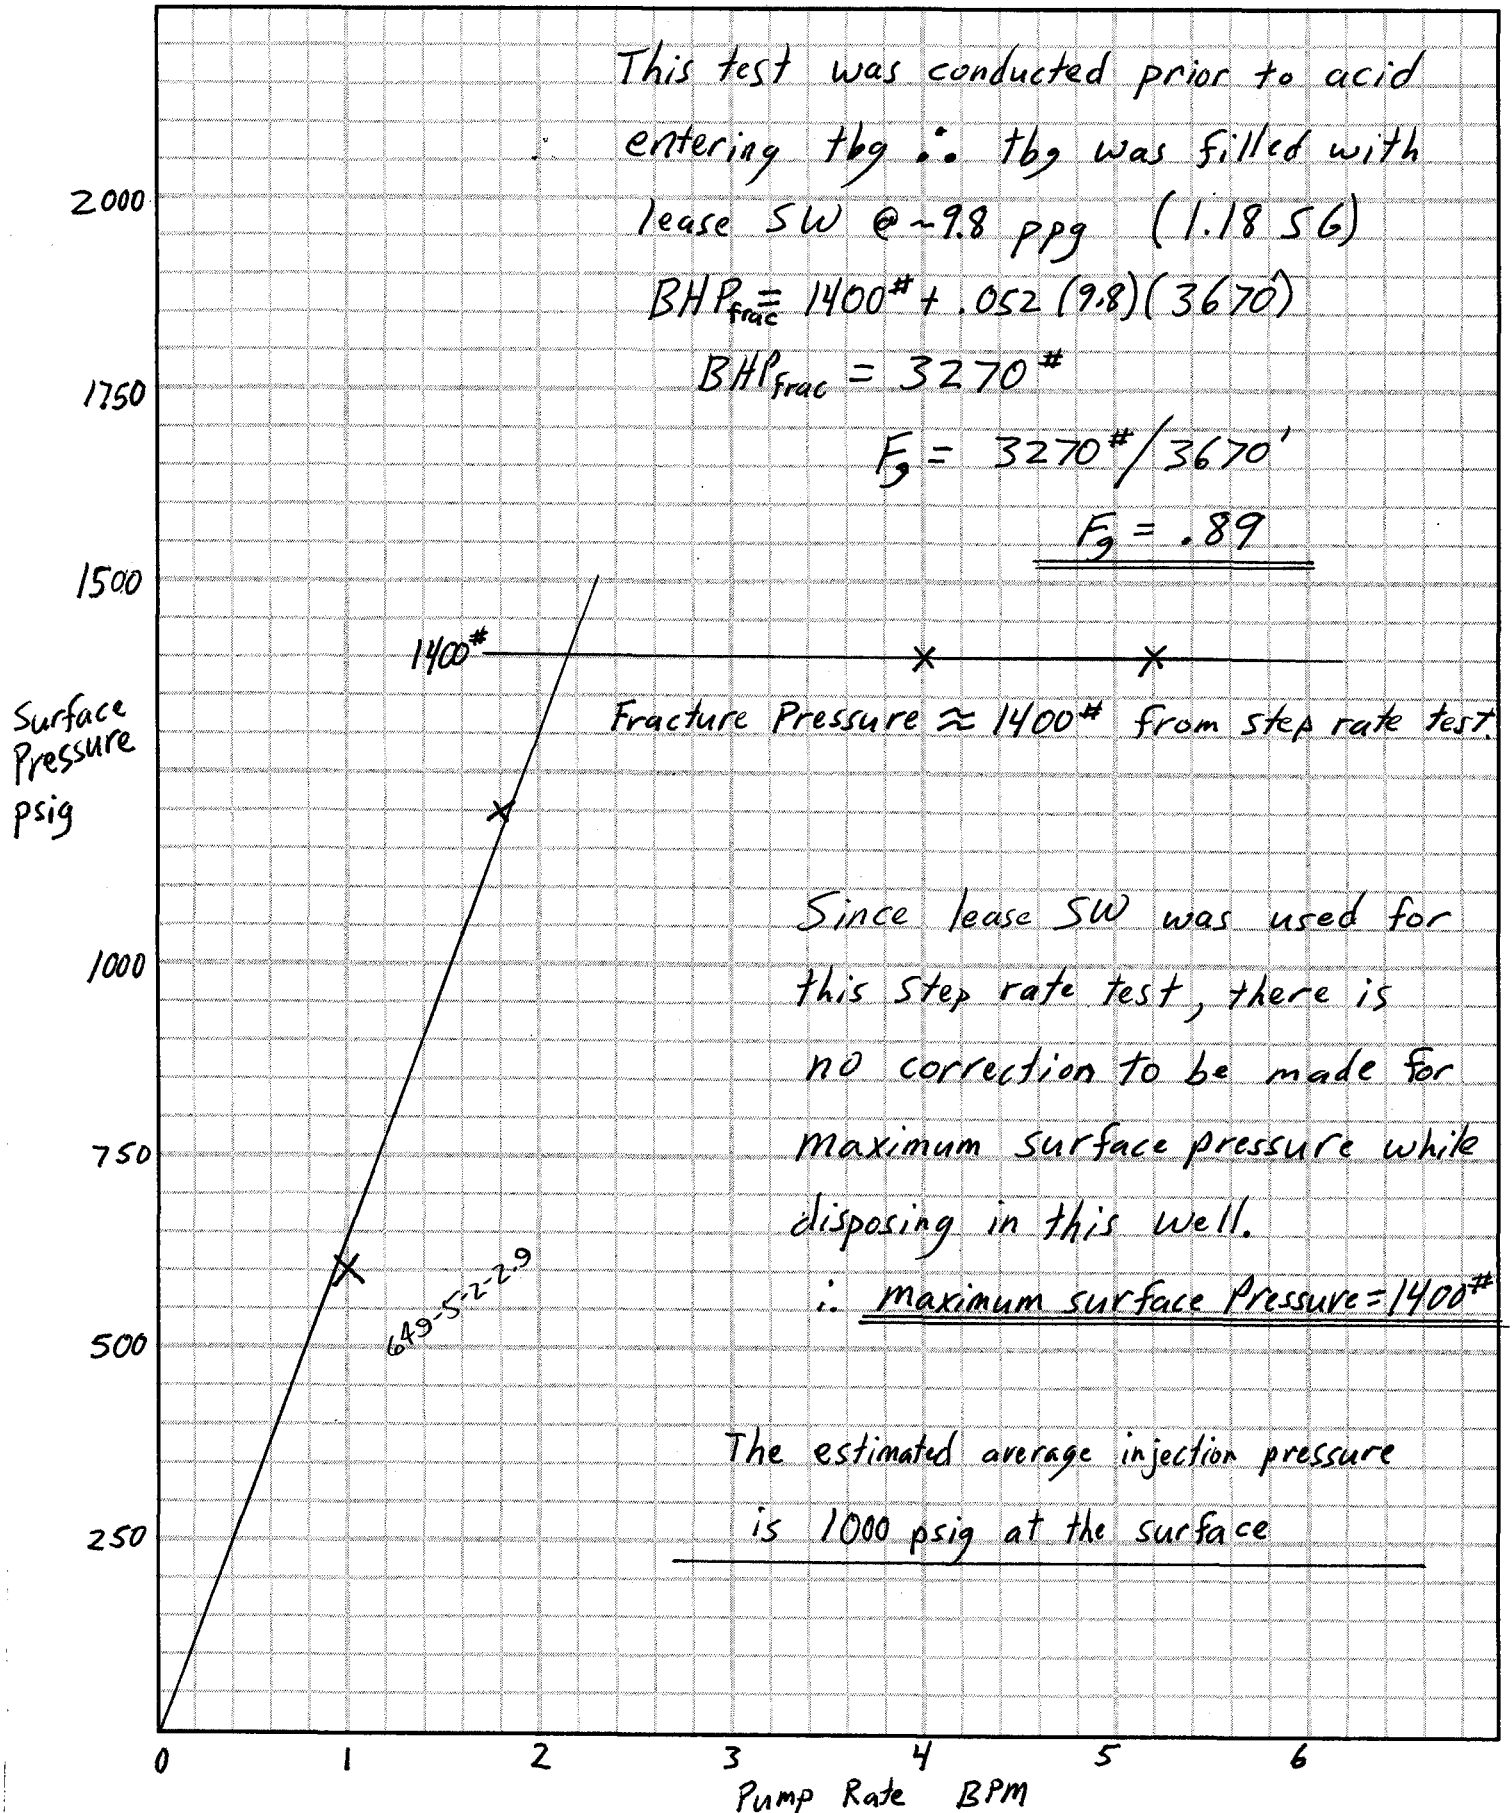 This test was conducted prior to acid
entering tbg ∴ tbg was filled with
lease SW @ ~9.8 ppg (1.18 SG)
BHPfrac = 1400# + .052 (9.8)(3670')
BHPfrac = 3270#
Fg = 3270#/3670'
Fg = .89
2000
1750
1500
1400#
Fracture Pressure ≈ 1400# from step rate test.
Surface
Pressure
psig
Since lease SW was used for
this step rate test, there is
no correction to be made for
maximum surface pressure while
disposing in this well.
∴ maximum surface Pressure = 1400#
1000
750
649-5-2-2.9
500
The estimated average injection pressure
is 1000 psig at the surface
250
0 1 2 3 4 5 6
Pump Rate BPM